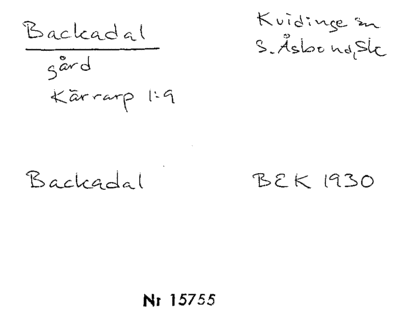 Backadal
gård
Kärrarp 1:9
Kvidinge sn
S. Åsbo hd, Sk
Backadal
BEK 1930
Nr 15755